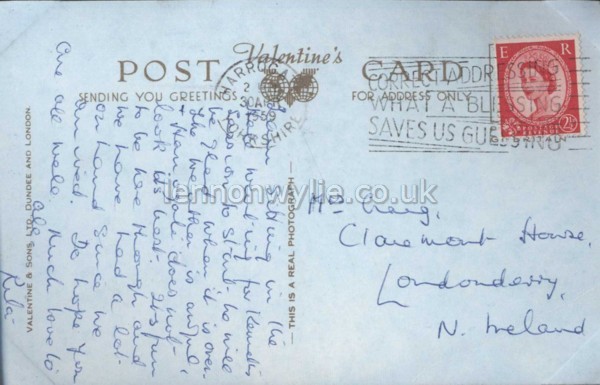 Valentine's
POST CARD
SENDING YOU GREETINGS
FOR ADDRESS ONLY
HARROGATE
2
30 AP
1959
YORKSHIRE
CORRECT ADDRESSING
WHAT A BLESSING
SAVES US GUESSING
E R
2½
VALENTINE & SONS, LTD., DUNDEE AND LONDON.
THIS IS A REAL PHOTOGRAPH
sitting in the
waiting for
session to start. he will
be when it is over.
The weather is awful,
& Harrogate does not
look its best. It's fun
to be here though and
we have had a lot
on hand since we
arrived. Do hope you
are all well. Much love to
all
Rita
Mrs Craig,
Claremont House,
Londonderry,
N. Ireland
lennonwylie.co.uk